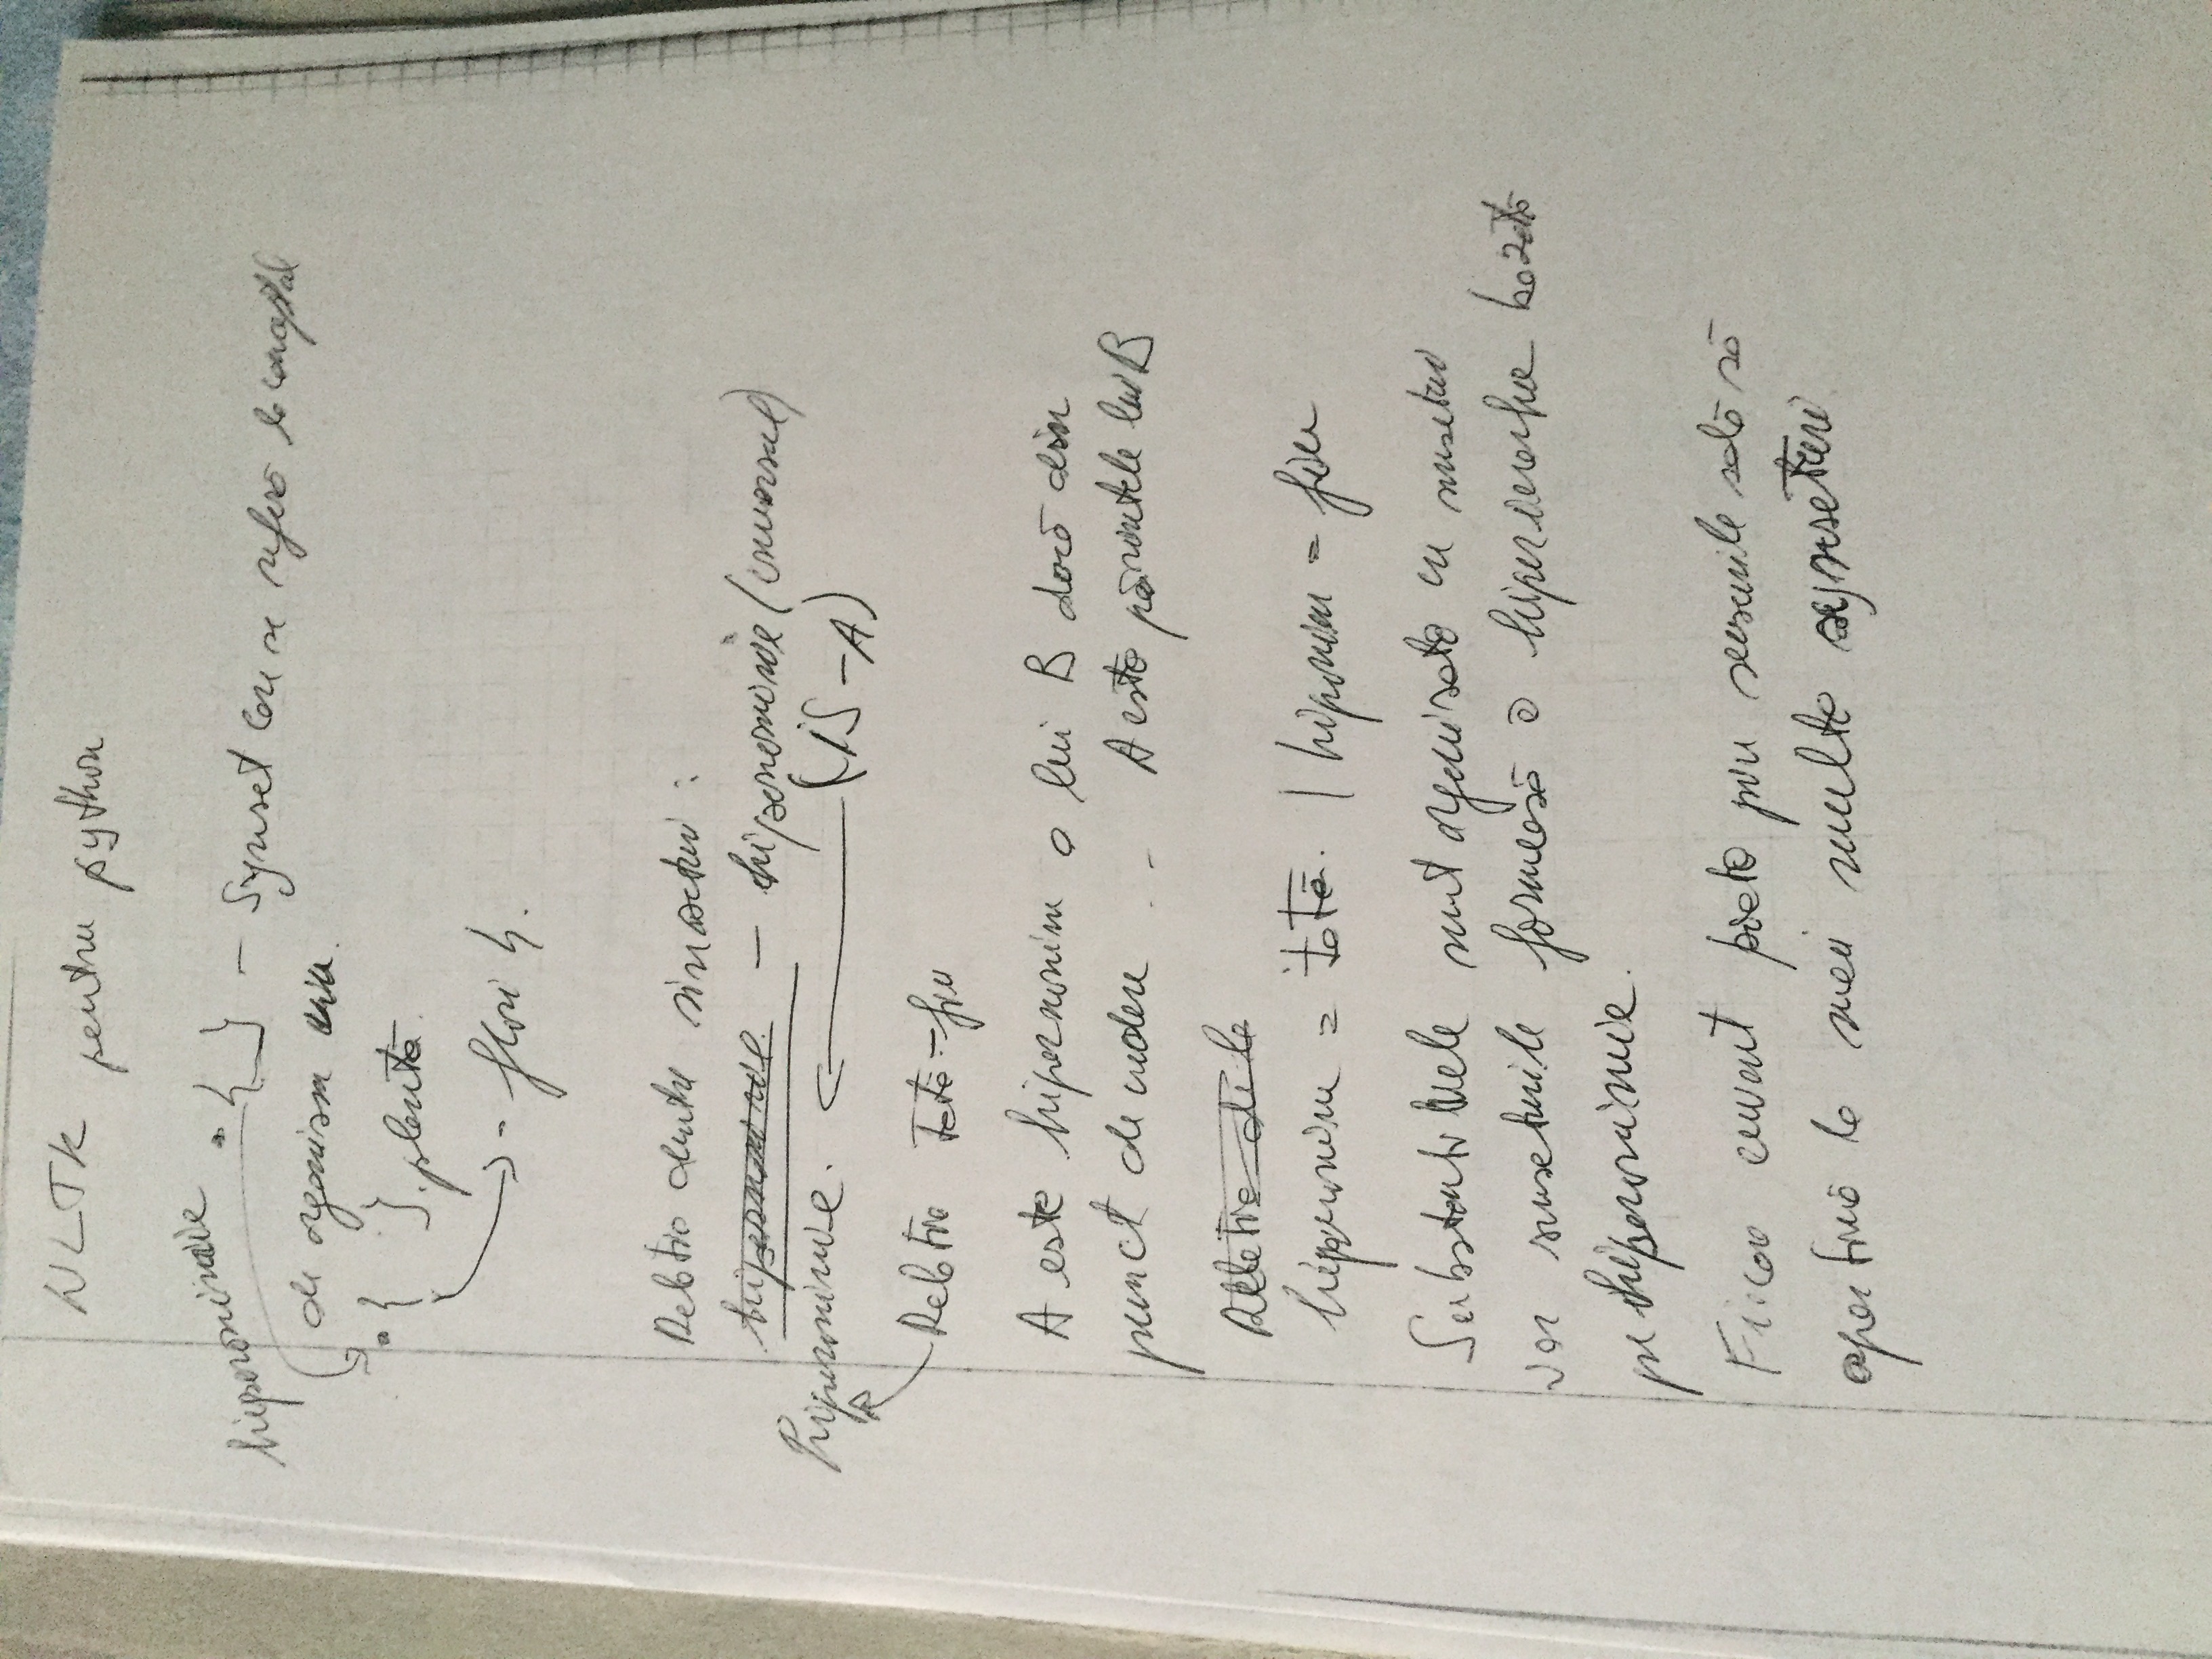 NLTK pentru python
hiperonimie • { } – Synset care se referă la conceptul
de organism viu.
• { }. plantă.
- flori }.
Relația dintre sinseturi :
hiperonimie. – hiponominie (inversul)
hiperonimie. (IS-A)
Relația Tată-fiu
A este hipernonim a lui B dacă din
punct de vedere .. A este părintele lui B
Relația de la
hiperonim = tată. | hiponim = fiu
Substantivele sunt organizate în sinseturi
iar sinseturile formează o hiperierarhie bazată
pe hiperonimie.
Fiecare cuvânt poate prin sensurile sale să
aparțină la mai multe synseturi